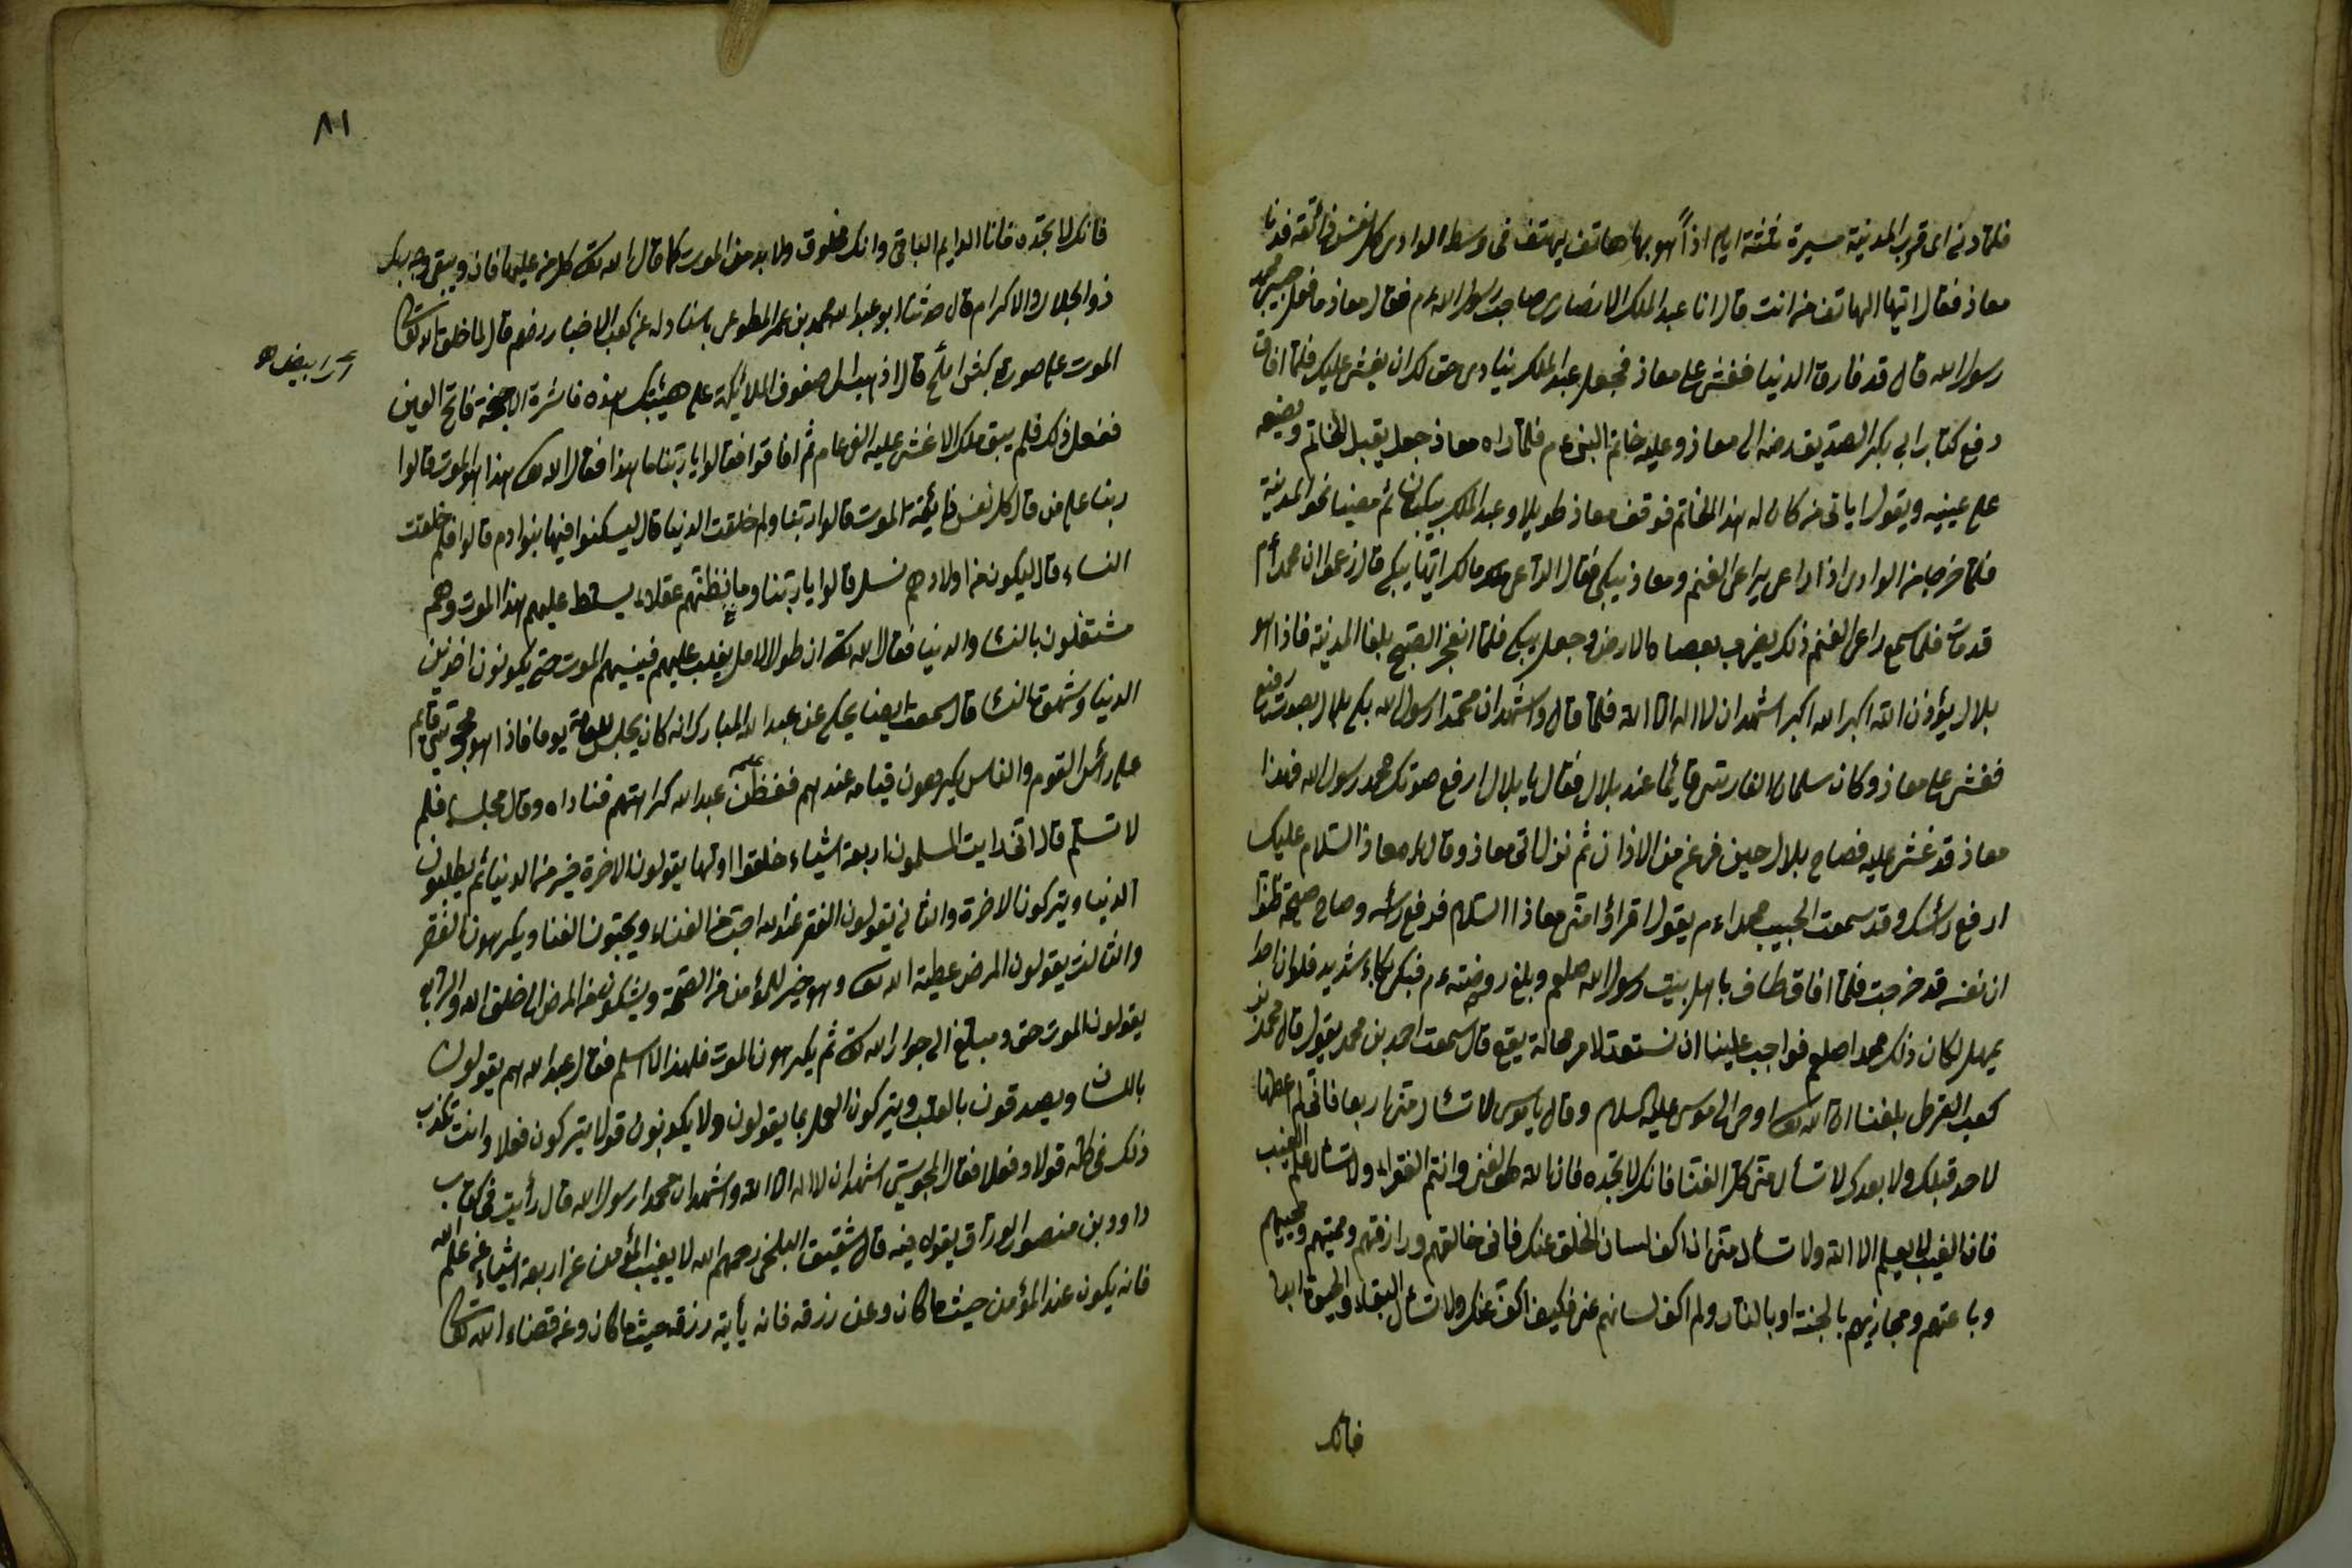 فلما دنى الى قرب المدينة مسيرة ثلثة ايام اذا هو بهاتف يهتف فى وسط الوادى كل نفس ذائقة فدنا
معاذ فقال ايها الهاتف من انت قال انا عبد الملك الانصارى صاحب رسول الله عم فقال معاذ ما فعل حبيبى محمد
رسول الله قال قد فارق الدنيا فغشى على معاذ فجعل عبد الملك ينادى حق لك ان يغشى عليك فلما افاق
دفع كتاب ابى بكر الصديق رضه الى معاذ وعليه خاتم النبى عم فلما راه معاذ جعل يقبل الخاتم ويضعه
على عينيه ويقول اياتى من كان له هذا الخاتم فوقف معاذ طويلا وعبد الملك يبكيان ثم مضيا نحو المدينة
فلما خرجا من الوادى اذا راعى يراعى الغنم ومعاذ يبكى فقال الراعى مالك ايها يبكى قال زعموا ان محمدا عم
قد مات فلما سمع راعى الغنم ذلك يضرب بعصاه الارض وجعل يبكى فلما انفجر الصبح بلغا المدينة فاذا هو
بلال يؤذن الله اكبر الله اكبر اشهد ان لا اله الا الله فلما قال واشهد ان محمدا رسول الله بكى بلال بصوت رفيع
فغشى على معاذ وكان سلمان الفارسى قائما عند بلال فقال يا بلال ارفع صوتك محمد رسول الله فهذا
معاذ قد غشى عليه فصاح بلال حين فرغ من الاذان ثم نزل اتى معاذ وقال يا معاذ السلام عليك
ارفع رأسك وقد سمعت الحبيب محمدا عم يقول اقرأ امتى معاذا السلام فرفع رأسه وصاح صيحة ظنوا
ان نفسه قد خرجت فلما افاق طاف باهل بيت رسول الله صلعم وبلغ روضته عم فبكى بكاء شديد فلو ان احدا
يمهل لكان ذلك محمدا صلعم فواجب علينا ان نستعد لامر محالة يقع قال سمعت احمد بن محمد يقول قال محمد بن
كعب القرظى بلغنا ان الله تعالى اوحى الى موسى عليه السلام وقال يا موسى لا تسأل متى اربعا فانى لم اعطها
لاحد قبلك ولا بعدك لا تسأل متى كل الغنا فانك لا تجده فان الله هو الغنى وانتم الفقراء ولا تسأل علم الغيب
فان الغيب لا يعلم الا الله ولا تسأل متى ان اكف لسان الخلق عنك فانى خالقهم ورازقهم ومميتهم ومحييهم
وباعثهم ومجازيهم بالجنة او بالنار ولم اكف لسانهم عنى فكيف اكف عنك ولا تسأل البقاء والحيوة ابدا
فانك
٨١
فانك لا تجده فانا الدايم الباقى وانك مخلوق ولا بد من الموت كما قال الله تعالى كل من عليها فان ويبقى وجه ربك
ذو الجلال والاكرام قال حدثنا ابو عبد الله محمد بن عمر المطوعى باسناده عن كعب الاخبار رضه قال لما خلق الله تعالى
الموت على صورة كبش املح قال اذهب الى صفوف الملائكة على هيئتك هذه ناشرة الاجنحة فاتح العين
ففعل ذلك فلم يبق ملك الا غشى عليه الف عام ثم افاقوا فقالوا يا ربنا ما هذا فقال الله تعالى هذا هو الموت قالوا
ربنا على من قال كل نفس ذائقة الموت قالوا ربنا ولم خلقت الدنيا قال ليسكنوا فيها بنوا ادم قالوا فلم خلقت
النساء قال ليكون من اولادهم نسل قالوا يا ربنا وما نظنهم عقلاء يسلط عليهم هذا الموت وهم
مشتغلون بالنساء والدنيا فقال الله تعالى ان طول الامل يغلب عليهم فينسيهم الموت حتى يكونون اخذين
الدنيا وشهوة النساء قال سمعت ايضا يحكى عن عبد الله المبارك انه كان يجلس للعامة يوما فاذا هو بمجوسى قايم
على رأس القوم والناس يكرهون قيامه عندهم ففطن عبد الله كراهتهم فناداه وقال مجلسه فلم
لا تسلم قال انى رايت المسلمون اربعة اشياء خلقوا اولها يقولون الاخرة خير من الدنيا ثم يطلبون
الدنيا ويتركون الاخرة والثانى يقولون الفقر عند الله احب من الغناء ويحبون الغنا ويكرهون الفقر
والثالث يقولون المرض عطية الله تعالى وهو خير للمؤمن من الصحة ويشكون من المرض الى خلق الله والرابع
يقولون الموت حق ومبلغ الى جوار الله تعالى ثم يكرهون الموت فلهذا لا اسلم فقال عبد الله هم يقولون
باللسان ويصدقون بالقلب ويتركون العمل بما يقولون ولا يكونون قولا يتركون فعلا وانت تكذب
ذلك فى كله قولا وفعلا فقال المجوسى اشهد ان لا اله الا الله واشهد ان محمدا رسول الله قال رأيت فى كتاب
داود بن منصور الوراق يقوله فيه قال شقيق البلخى رحمهم الله لا يغيب المؤمن عن اربعة اشياء عن علم الله
فانه يكون عند المؤمن حيث ما كان وعن رزقه فانه يأتيه رزقه حيث ما كان وعن قضاء الله تعالى